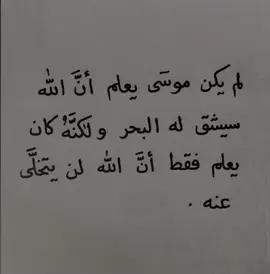 لم يكن موسَى يعلم أنَّ الله
سيشق له البحر ولكنَّهُ كان
يعلم فقط أنَّ الله لن يتخلَّى
عنه .